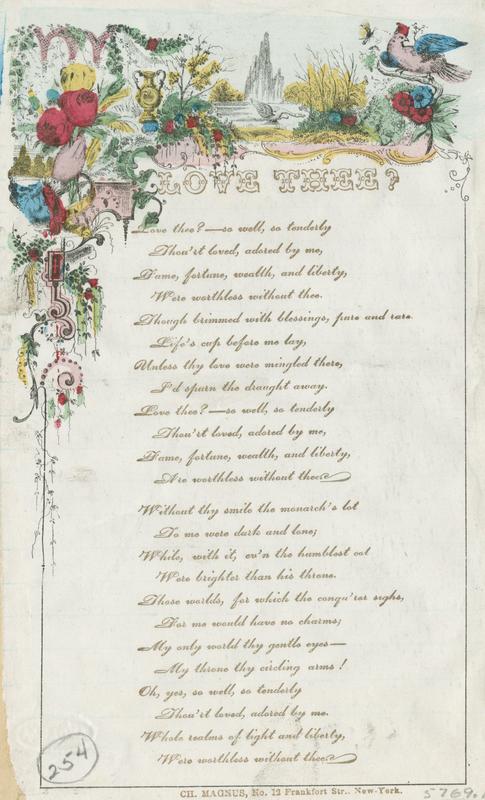 LOVE THEE?
Love thee?—so well, so tenderly
Thou'rt loved, adored by me,
Fame, fortune, wealth, and liberty,
Were worthless without thee.
Though brimmed with blessings, pure and rare
Life's cup before me lay,
Unless thy love were mingled there,
I'd spurn the draught away.
Love thee?—so well, so tenderly
Thou'rt loved, adored by me,
Fame, fortune, wealth, and liberty,
Are worthless without thee.
Without thy smile the monarch's lot
To me were dark and lone;
While, with it, ev'n the humblest cot
Were brighter than his throne.
Those worlds, for which the conqu'ror sighs,
For me would have no charms;
My only world thy gentle eyes—
My throne thy circling arms!
Oh, yes, so well, so tenderly
Thou'rt loved, adored by me.
Whole realms of light and liberty,
Were worthless without thee.
254
CH. MAGNUS, No. 12 Frankfort Str., New-York.
5769.